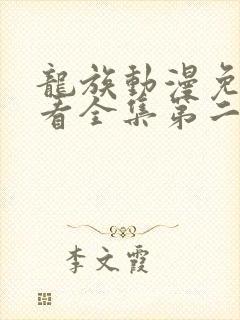 龍族動漫免
看全集第二
李文霞